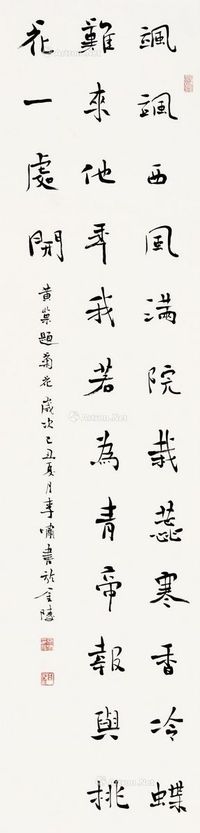 飒飒西風满院栽蕊寒香冷蝶
難來他年我若為青帝報與桃
花一處開
黄巢題菊花歲次己丑夏月李啸書於金陵